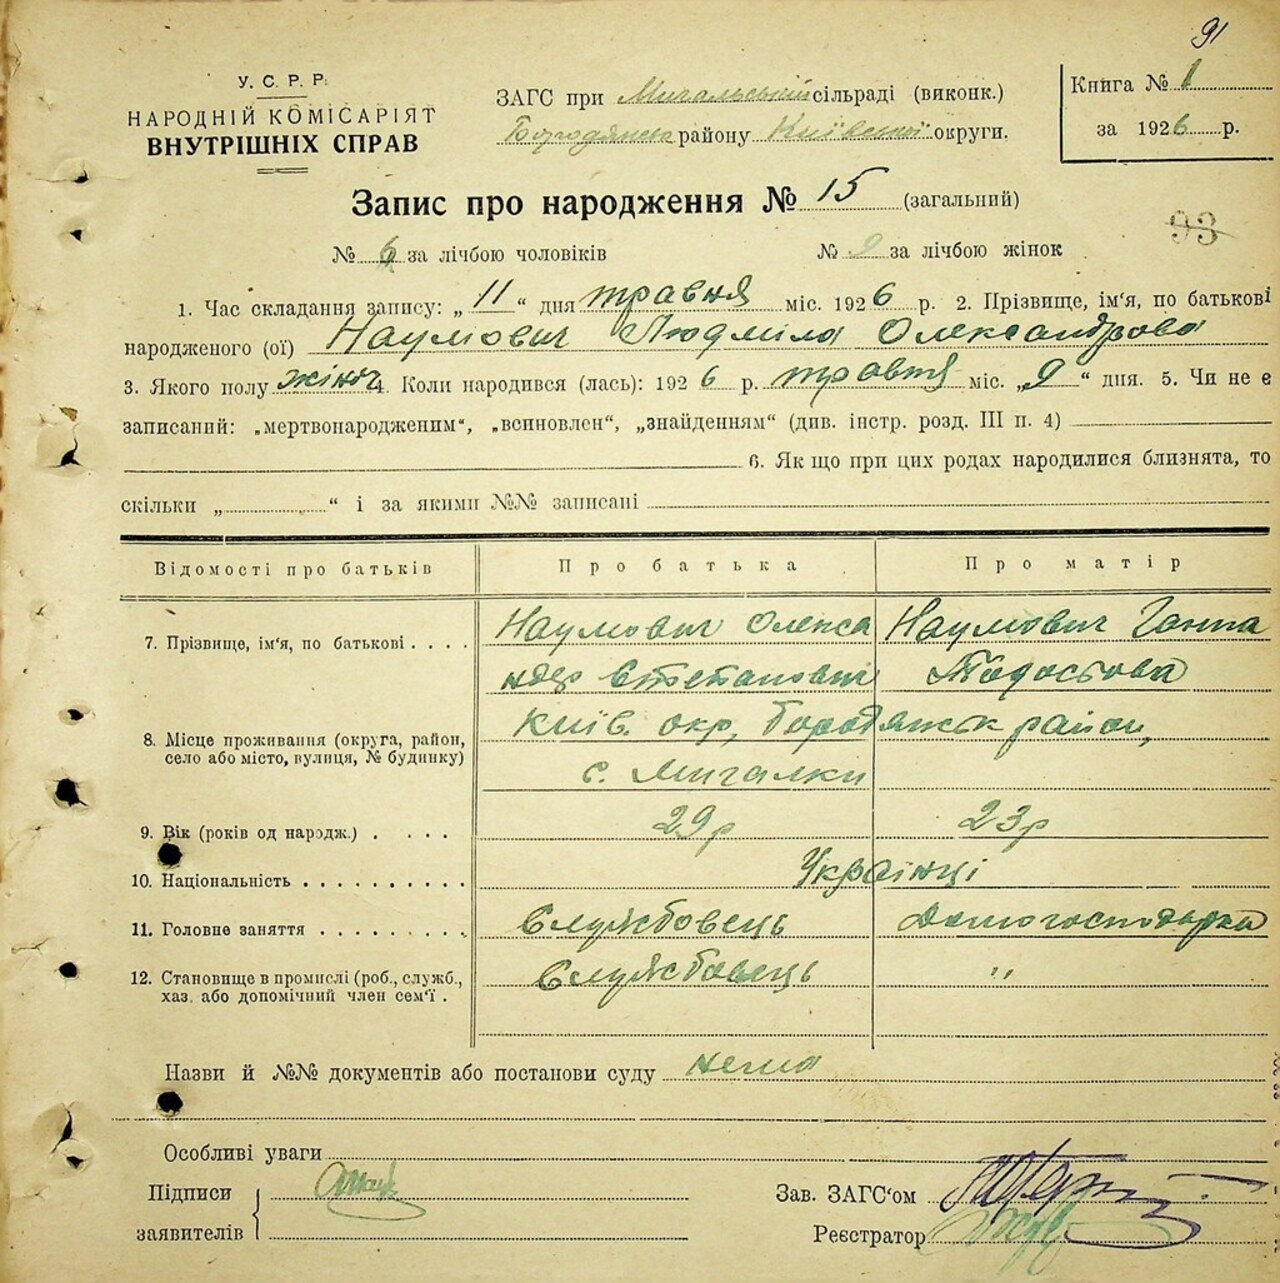 91
У. С. Р. Р.
НАРОДНІЙ КОМІСАРІЯТ
ВНУТРІШНІХ СПРАВ
ЗАГС при Мигальський сільраді (виконк.)
Бородянськ району Київської округи.
Книга № 1
за 1926 р.
Запис про народження № 15 (загальний)
93
№ 6 за лічбою чоловіків № 9 за лічбою жінок
1. Час складання запису: „ 11 “ дня травня міс. 1926 р. 2. Прізвище, ім'я, по батькові
народженого (ої) Наумович Людміла Олександрова
3. Якого полу жіноч 4. Коли народився (лась): 1926 р. травня міс. „ 9 “ дня. 5. Чи не є
записаний: „мертвонародженим“, „всиновлен“, „знайденням“ (див. інстр. розд. III п. 4)
6. Як що при цих родах народилися близнята, то
скільки „ “ і за якими №№ записані
Відомості про батьків Про батька Про матір
7. Прізвище, ім'я, по батькові . . . . Наумович Олекса Наумович Ганна
ндер Степанович Тодосьова
8. Місце проживання (округа, район, село або місто, вулиця, № будинку) Київ. окр, Бородянськ район,
с. Мигалки
9. Вік (років од народж.) . . . . 29 р 23 р
10. Національність . . . . . . . . . . Українці
11. Головне заняття . . . . . . . . . Службовець Домогосподарка
12. Становище в промислі (роб., служб., хаз. або допомічний член сем'ї . Службовець „
Назви й №№ документів або постанови суду нема
Особливі уваги
Підписи
заявителів
Зав. ЗАГС'ом
Реєстратор